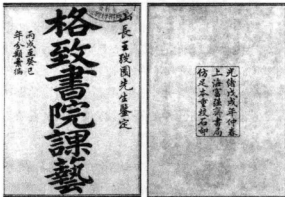 山長王弢園先生鑒定
格致書院課藝
丙戌至癸巳
年分類彙編
光緒戊戌年仲春
上海富強齋書局
仿足本重校石印